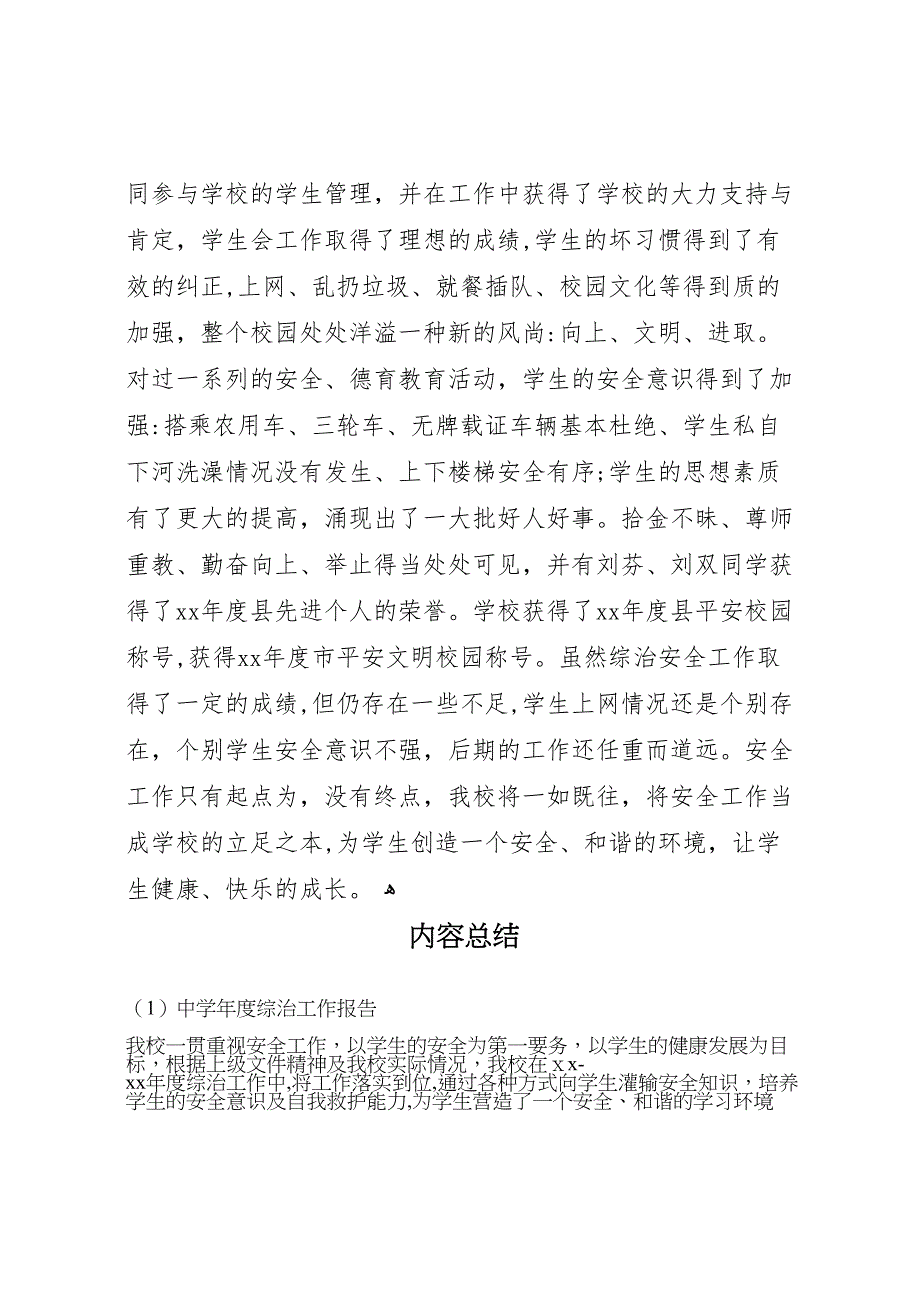 同参与学校的学生管理，并在工作中获得了学校的大力支持与
肯定，学生会工作取得了理想的成绩,学生的坏习惯得到了有
效的纠正,上网、乱扔垃圾、就餐插队、校园文化等得到质的
加强，整个校园处处洋溢一种新的风尚:向上、文明、进取。
对过一系列的安全、德育教育活动，学生的安全意识得到了加
强:搭乘农用车、三轮车、无牌载证车辆基本杜绝、学生私自
下河洗澡情况没有发生、上下楼梯安全有序;学生的思想素质
有了更大的提高，涌现出了一大批好人好事。拾金不昧、尊师
重教、勤奋向上、举止得当处处可见，并有刘芬、刘双同学获
得了xx年度县先进个人的荣誉。学校获得了xx年度县平安校园
称号,获得xx年度市平安文明校园称号。虽然综治安全工作取
得了一定的成绩,但仍存在一些不足,学生上网情况还是个别存
在，个别学生安全意识不强，后期的工作还任重而道远。安全
工作只有起点为，没有终点，我校将一如既往，将安全工作当
成学校的立足之本,为学生创造一个安全、和谐的环境，让学
生健康、快乐的成长。 ﻫ
内容总结
（1）中学年度综治工作报告
我校一贯重视安全工作，以学生的安全为第一要务，以学生的健康发展为目
标，根据上级文件精神及我校实际情况，我校在ｘx-
xx年度综治工作中,将工作落实到位,通过各种方式向学生灌输安全知识，培养
学生的安全意识及自我救护能力,为学生营造了一个安全、和谐的学习环境